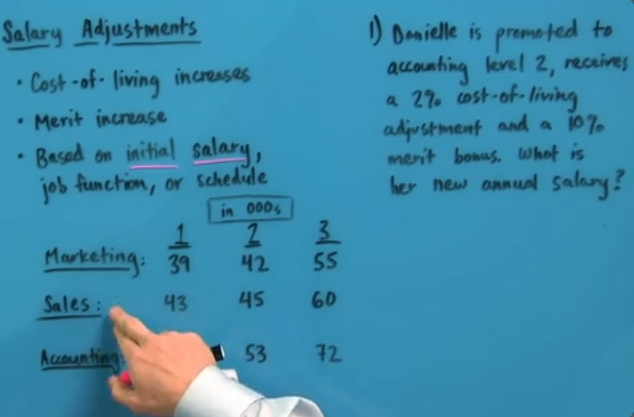 Salary Adjustments
• Cost-of-living increases
• Merit increase
• Based on initial salary,
job function, or schedule
in 000s
1 2 3
Marketing: 39 42 55
Sales: 43 45 60
Accounting: 53 72
1) Danielle is promoted to
accounting level 2, receives
a 2% cost-of-living
adjustment and a 10%
merit bonus. What is
her new annual salary?